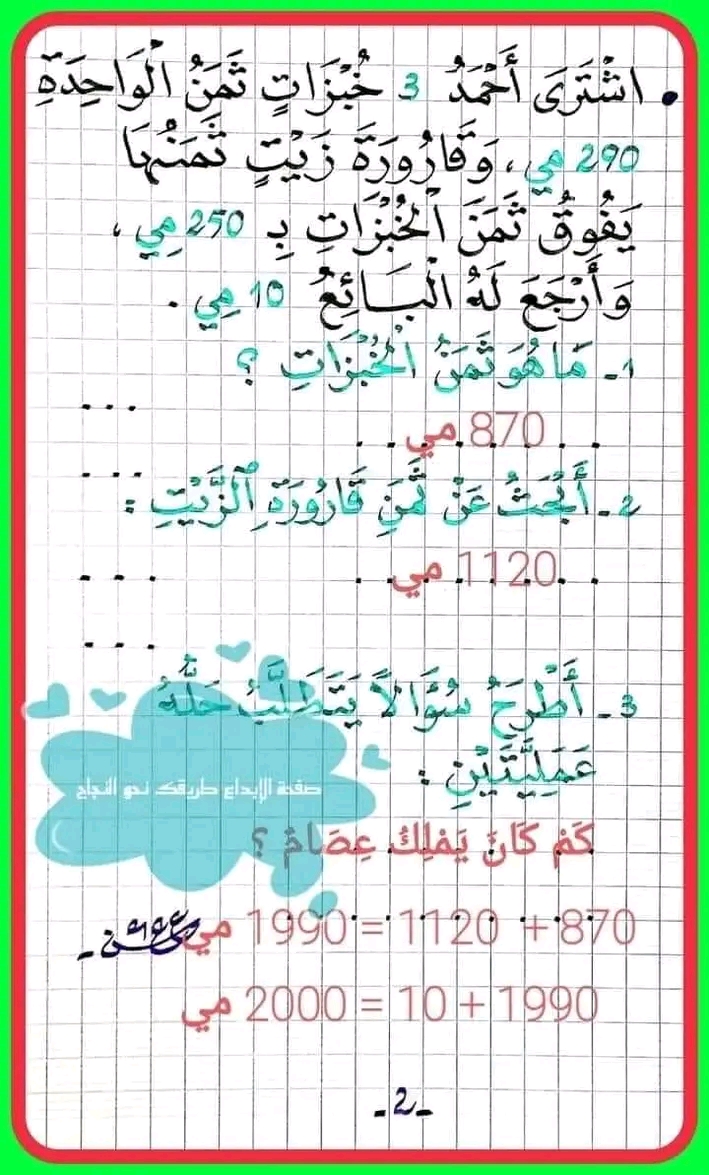 • اشْتَرَى أَحْمَدُ 3 خُبْزَاتٍ ثَمَنُ الْوَاحِدَةِ
290 مي، وَقَارُورَةَ زَيْتٍ ثَمَنُهَا
يَفُوقُ ثَمَنَ الْخُبْزَاتِ بِـ 250 مِي،
وَأَرْجَعَ لَهُ الْبَائِعُ 10 مِي.
1- مَا هُوَ ثَمَنُ الْخُبْزَاتِ؟
...
870 مي
...
2- أَبْحَثُ عَنْ ثَمَنِ قَارُورَةِ الزَّيْتِ:
1120 مي
...
...
3- أَطْرَحُ سُؤَالاً يَتَطَلَّبُ حَلُّهُ
عَمَلِيَّتَيْنِ:
صفحة الإبداع طريقك نحو النجاح
كَمْ كَانَ يَمْلِكُ عِصَامٌ؟
870 + 1120 = 1990 مي
1990 + 10 = 2000 مي
-2-